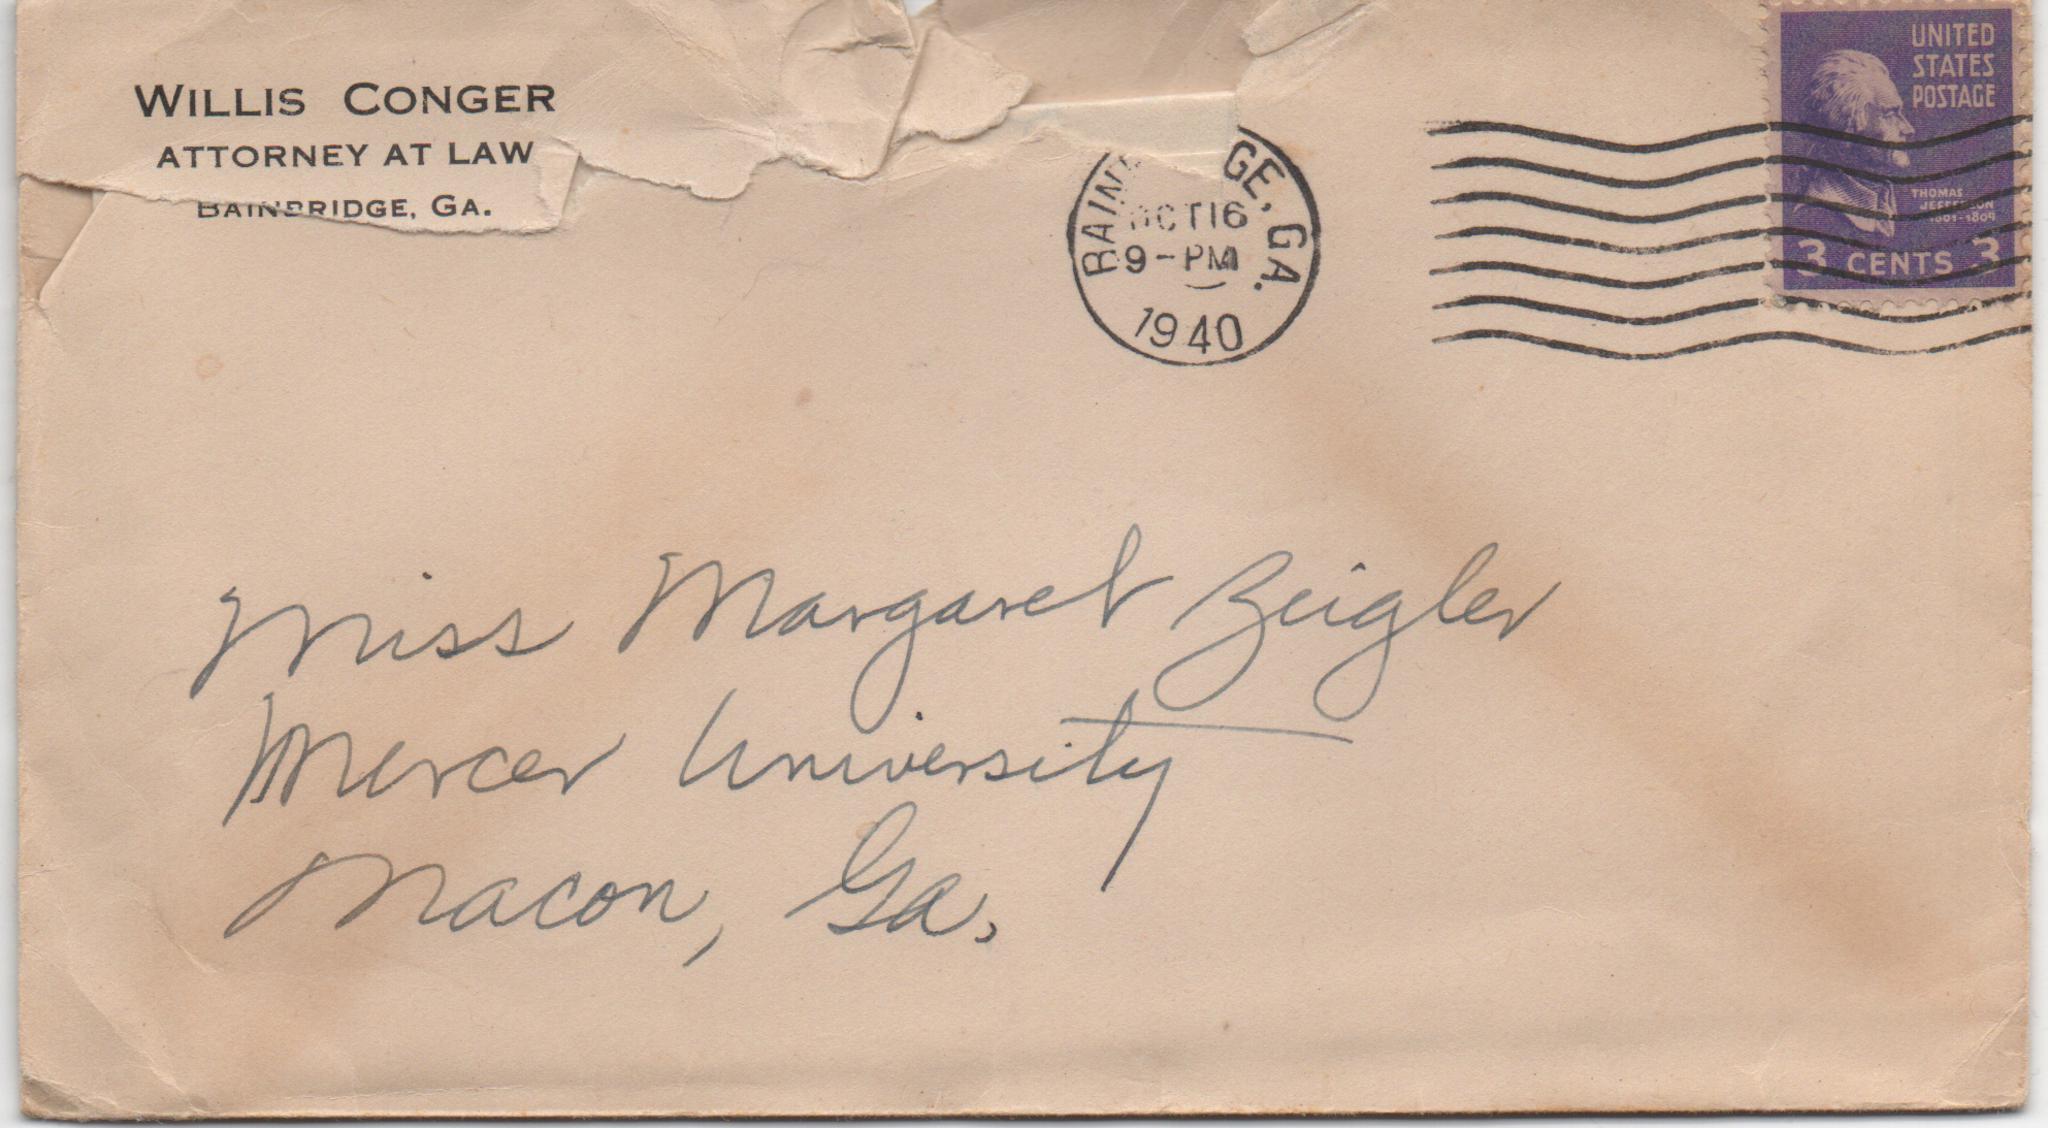 WILLIS CONGER
ATTORNEY AT LAW
BAINBRIDGE, GA.
BAINBRIDGE, GA.
OCT 16
9-PM
1940
UNITED
STATES
POSTAGE
THOMAS
JEFFERSON
1801-1809
3 CENTS 3
Miss Margaret Zeigler
Mercer University
Macon, Ga.